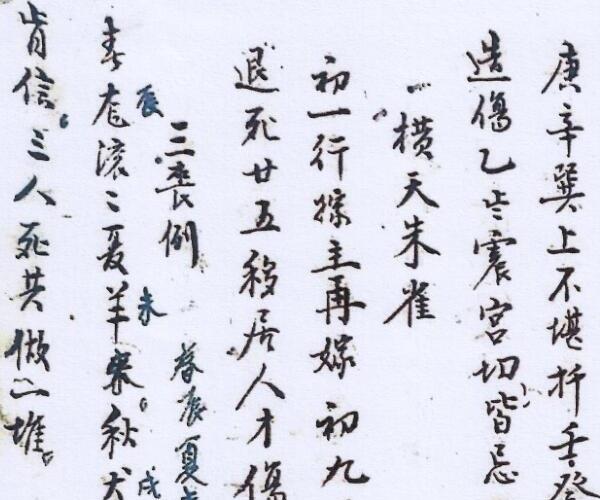 庚辛巽上不堪扦壬癸
造傷乙 震宮切皆忌
一横天朱雀
初一行嫁主再嫁初九
退死廿五移居人才傷
三喪例
春辰夏
春龙滚々夏羊 秋犬
辰未戌
肯信三人死共做一堆